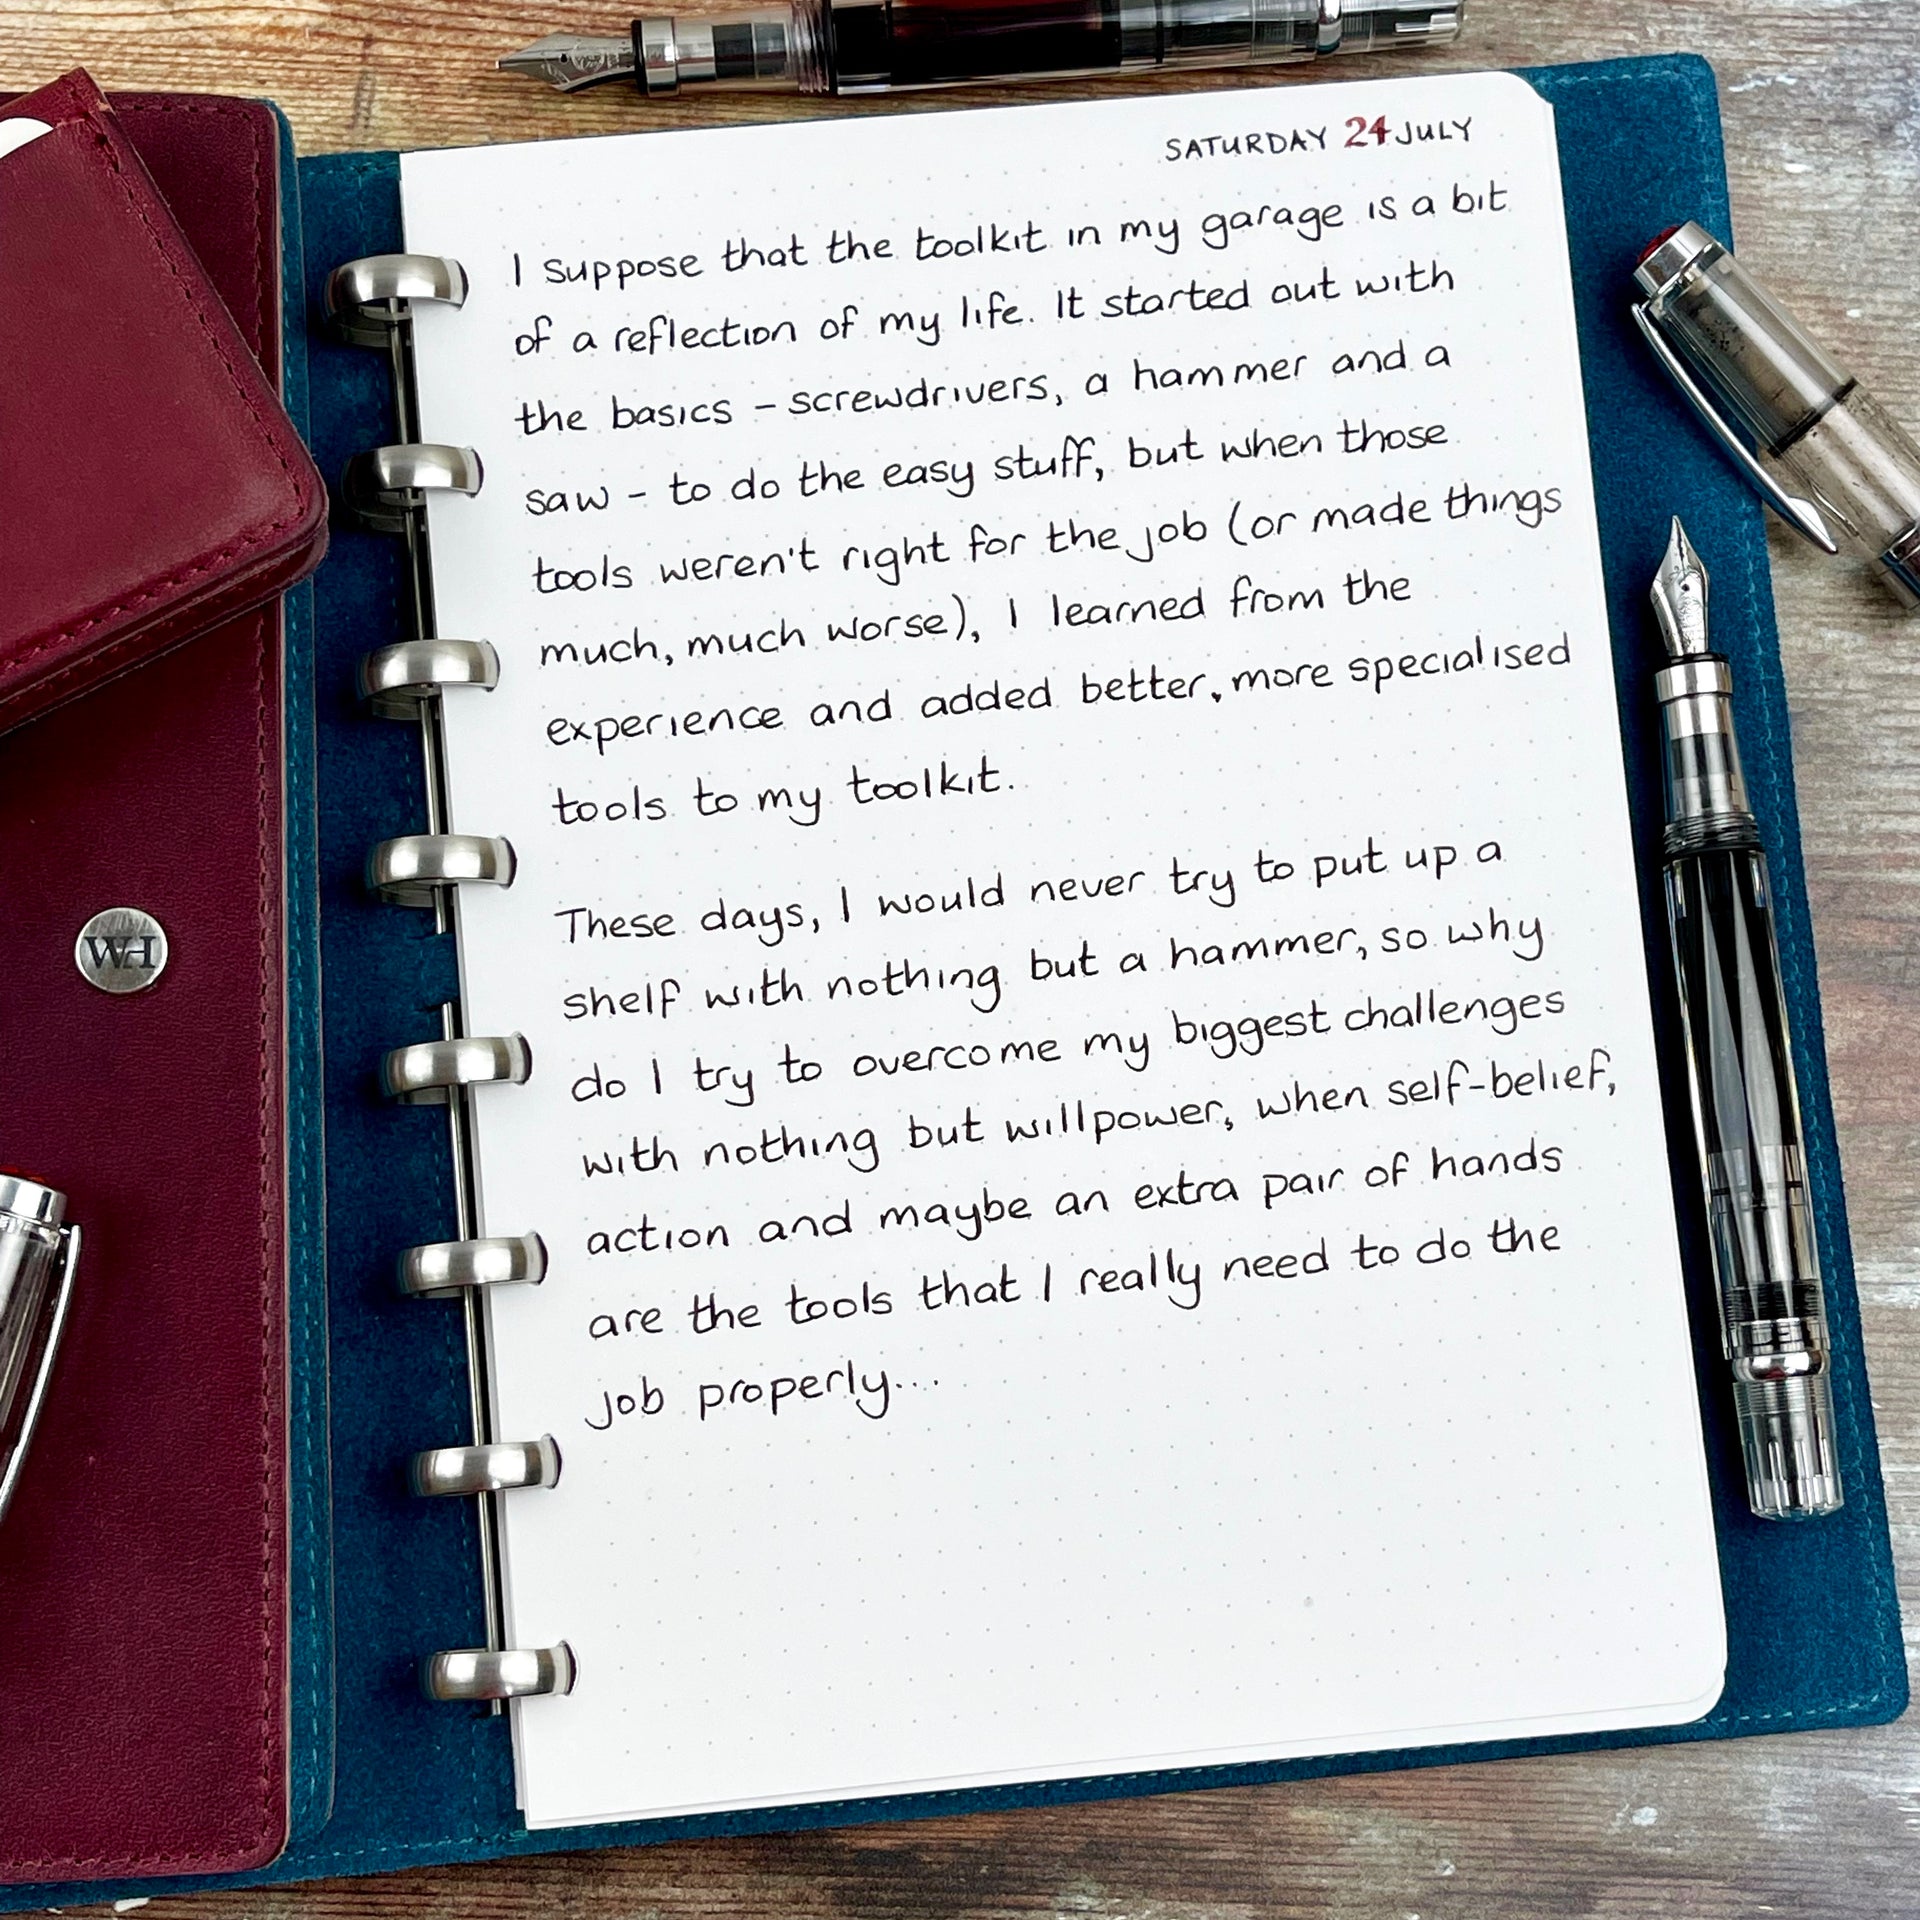 SATURDAY 24 JULY
I suppose that the toolkit in my garage is a bit
of a reflection of my life. It started out with
the basics – screwdrivers, a hammer and a
saw – to do the easy stuff, but when those
tools weren't right for the job (or made things
much, much worse), I learned from the
experience and added better, more specialised
tools to my toolkit.
These days, I would never try to put up a
shelf with nothing but a hammer, so why
do I try to overcome my biggest challenges
with nothing but willpower, when self-belief,
action and maybe an extra pair of hands
are the tools that I really need to do the
job properly...
WH